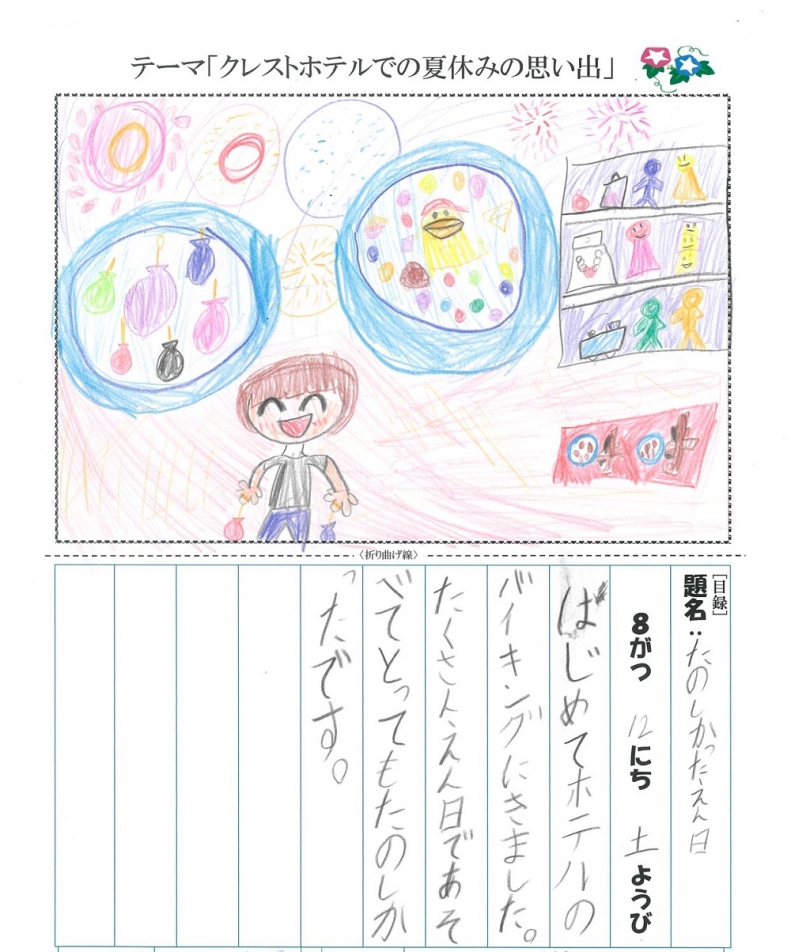 テーマ「クレストホテルでの夏休みの思い出」
〈折り曲げ線〉
[目録]
題名：たのしかったえん日
8がつ 12にち 土ようび
ばじめてホテルの
バイキングにきました。
たくさんえん日であそ
べてとってもたのしか
ったです。